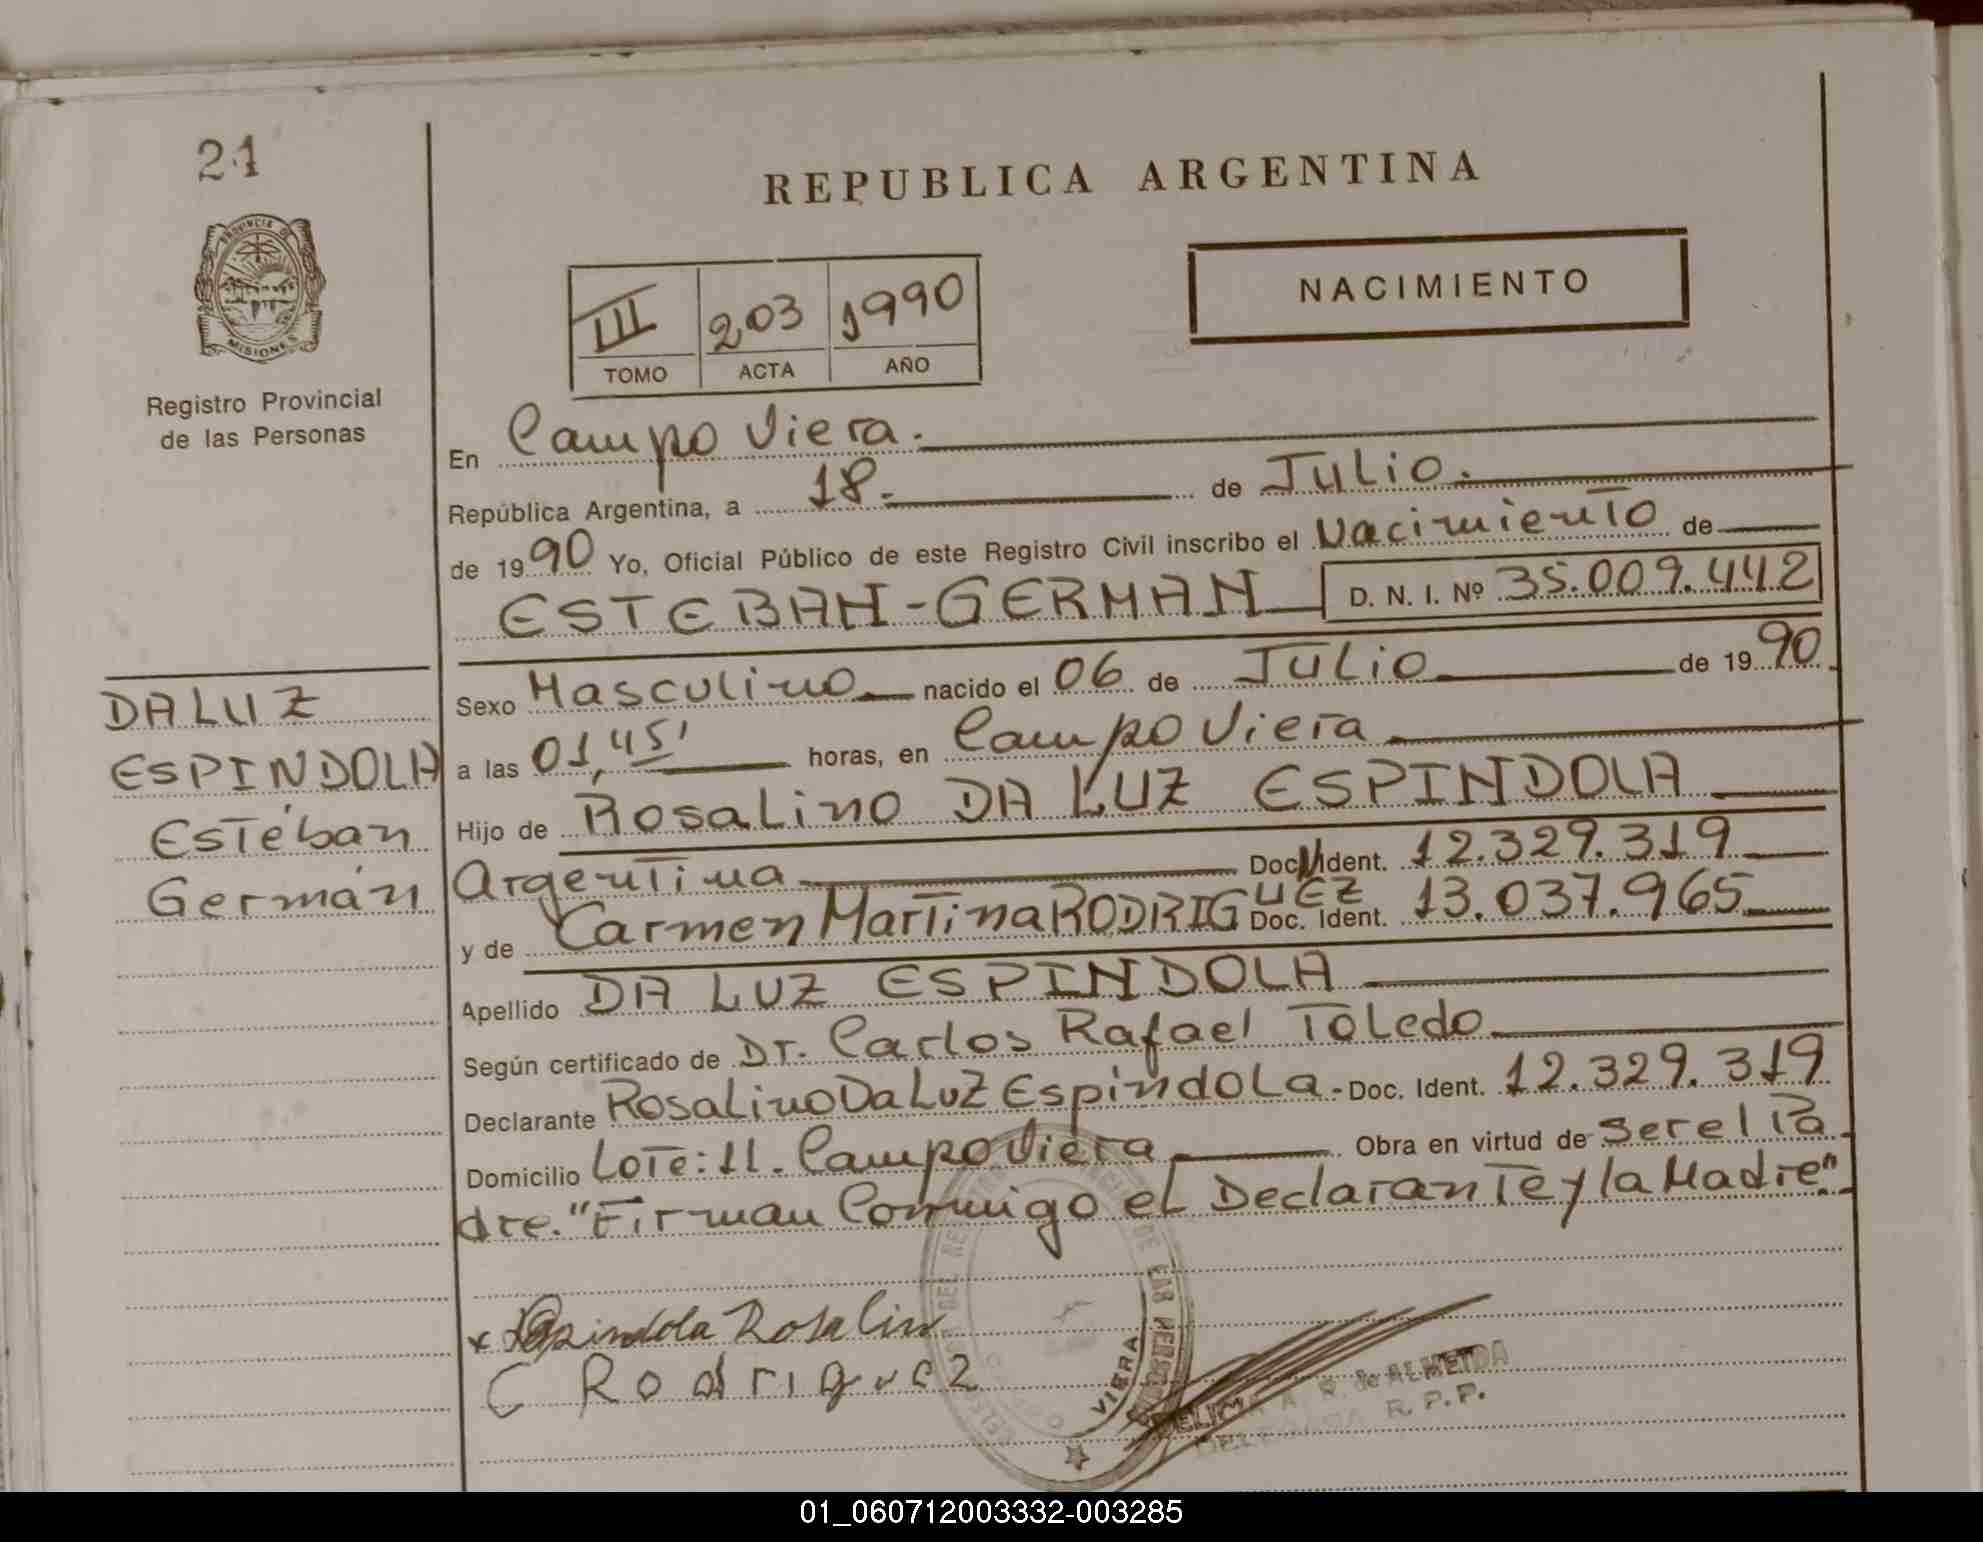 21
REPUBLICA ARGENTINA
PROVINCIA DE
MISIONES
Registro Provincial
de las Personas
III 203 1990
TOMO ACTA AÑO
NACIMIENTO
En Campo Viera.
República Argentina, a 18. de Julio.
de 1990 Yo, Oficial Público de este Registro Civil inscribo el Nacimiento de
ESTEBAN-GERMAN D. N. I. Nº 35.009.442
Sexo Masculino nacido el 06 de Julio de 1990
a las 01,45' horas, en Campo Viera
Hijo de Rosalino DA LUZ ESPINDOLA
Argentina Doc. Ident. 12.329.319
y de Carmen Martina RODRIGUEZ Doc. Ident. 13.037.965
Apellido DA LUZ ESPINDOLA
Según certificado de Dr. Carlos Rafael Toledo
Declarante Rosalino Da Luz Espindola - Doc. Ident. 12.329.319
Domicilio Lote: 11. Campo Viera Obra en virtud de ser el Pa
dre. "Firman Conmigo el Declarante y la Madre"
DA LUZ
ESPINDOLA
Estéban
Germán
x Espindola Rosalin
C Rodriguez
VIERA
DE LAS PERSONAS
A. R. de ALMEIDA
R. P. P.
01_060712003332-003285